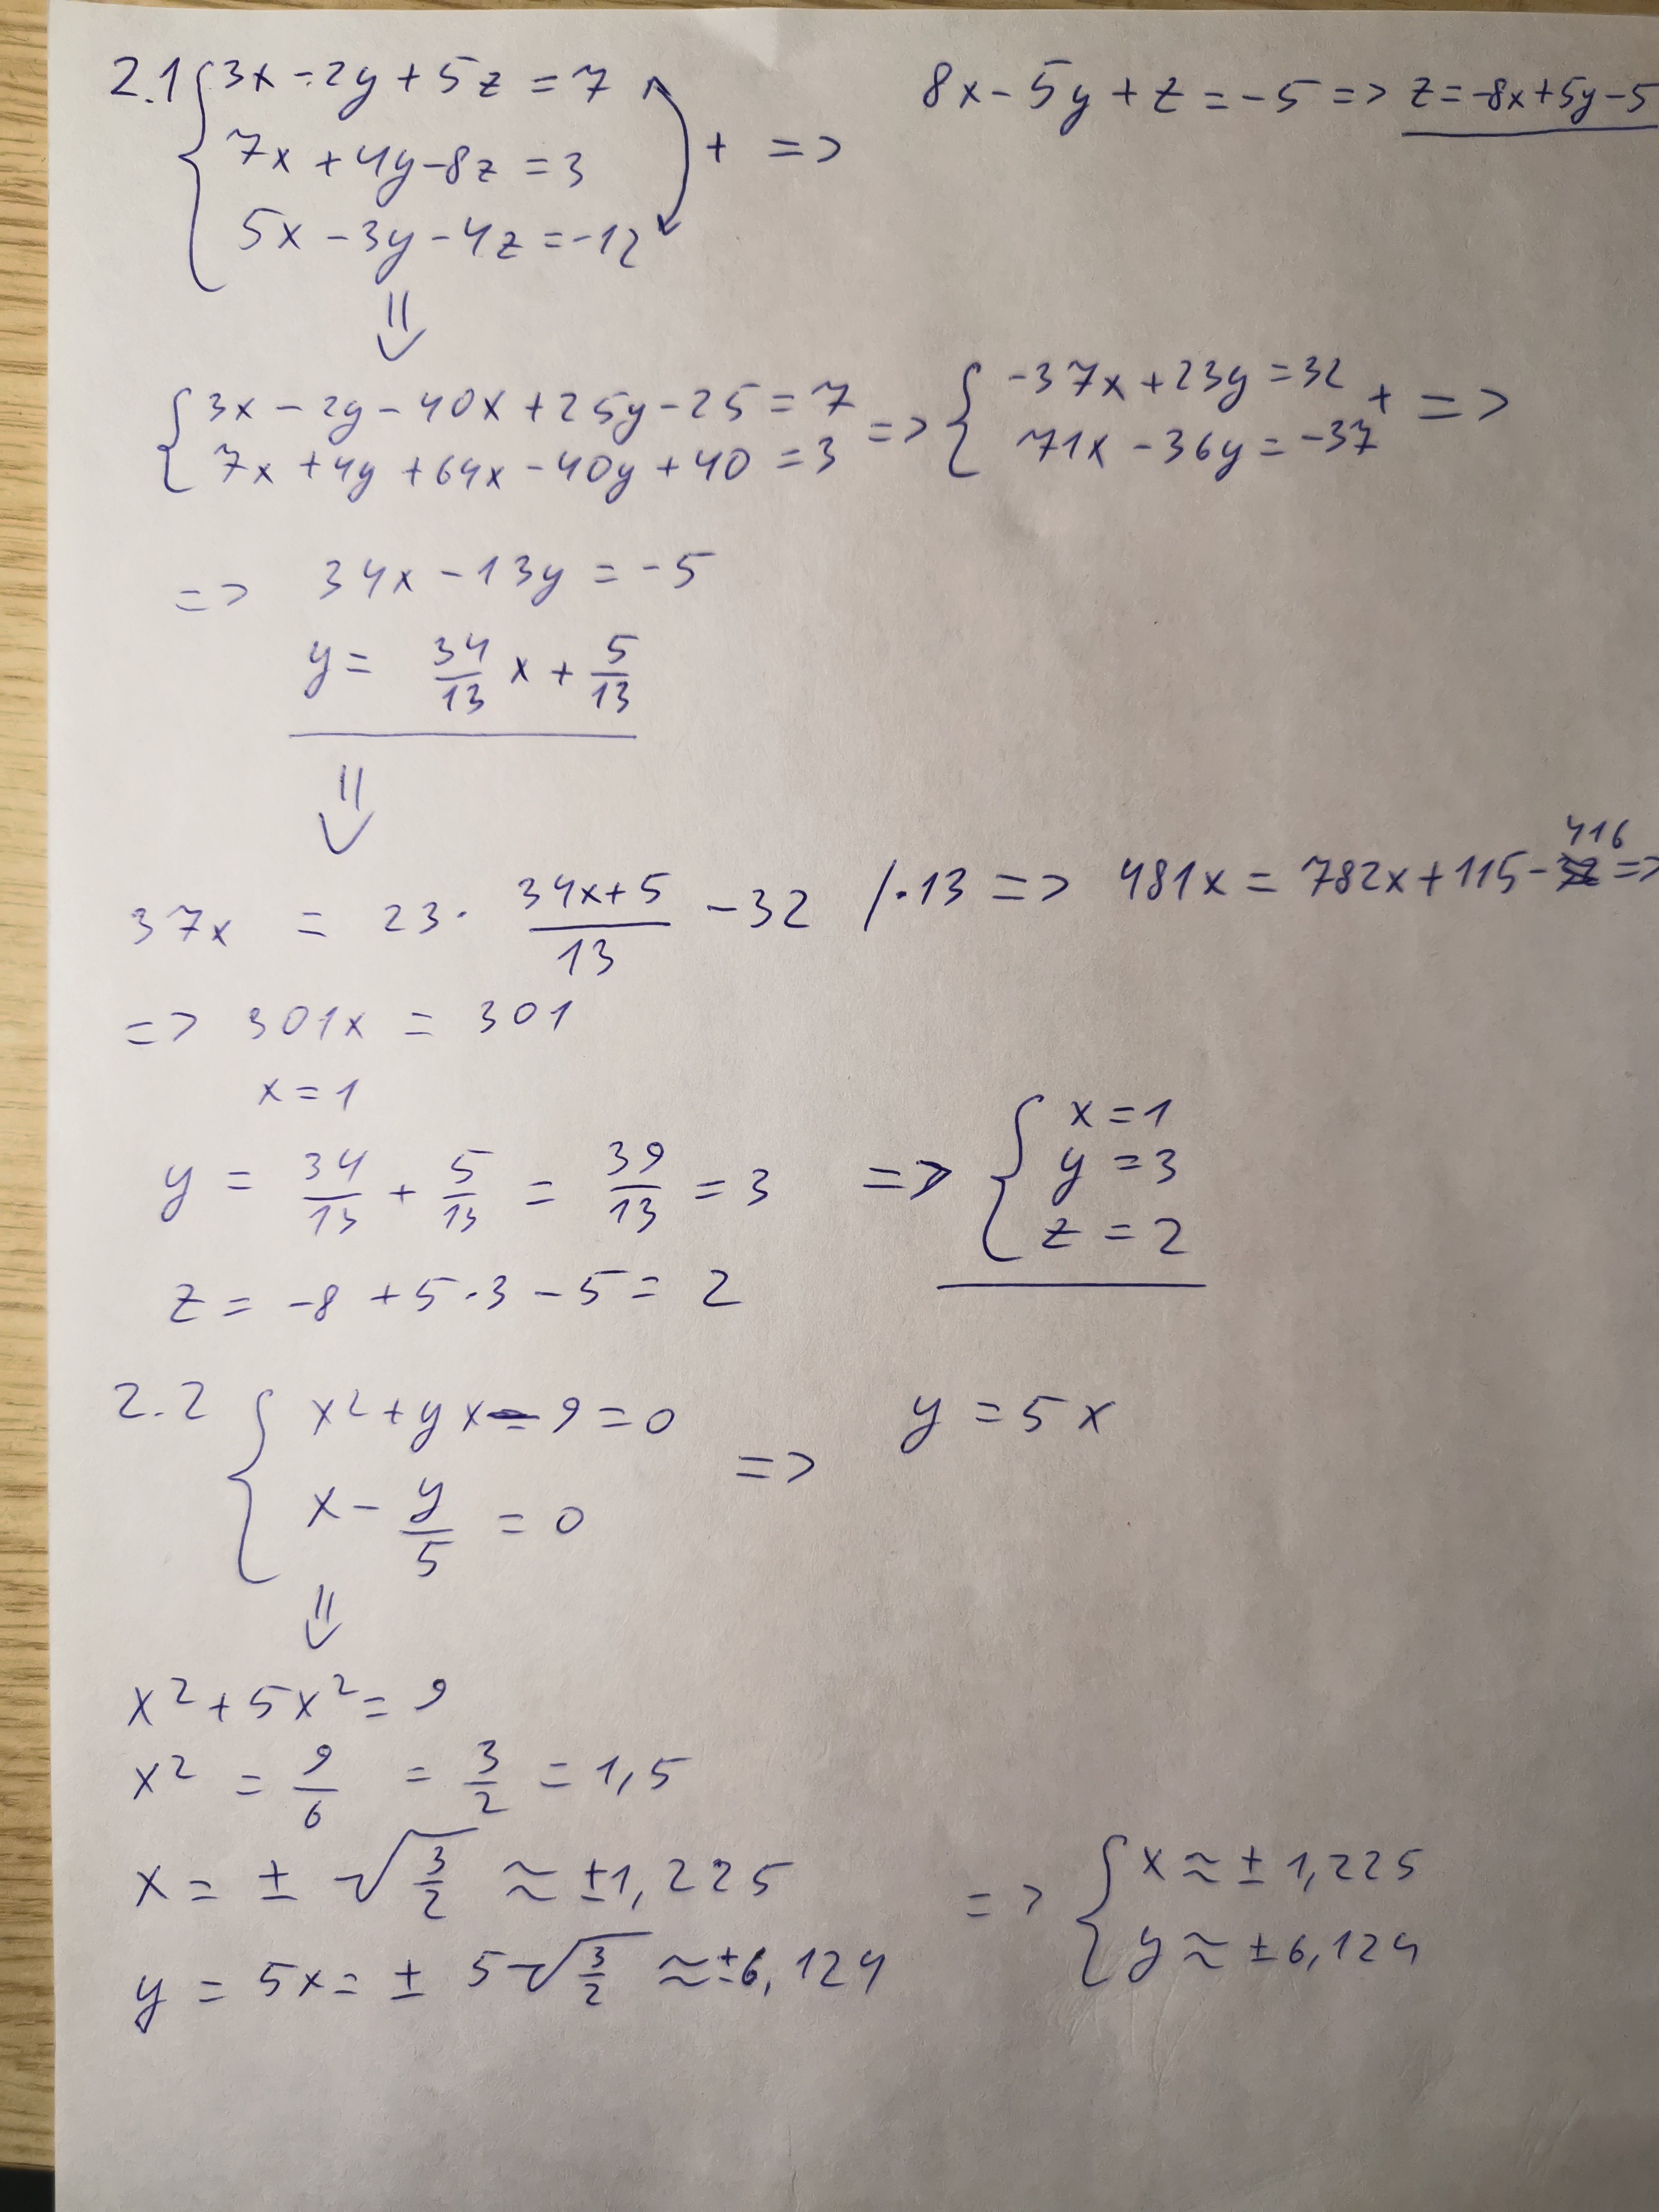 2.1 { 3x - 2y + 5z = 7
7x + 4y - 8z = 3
5x - 3y - 4z = -12
+ => 8x - 5y + z = -5 => z = -8x + 5y - 5
⇓
{ 3x - 2y - 40x + 25y - 25 = 7
7x + 4y + 64x - 40y + 40 = 3
=> { -37x + 23y = 32
71x - 36y = -37
+ =>
=> 34x - 13y = -5
y = 34/13 x + 5/13
⇓
37x = 23 · (34x + 5)/13 - 32 / · 13 => 481x = 782x + 115 - 416 =>
=> 301x = 301
x = 1
y = 34/13 + 5/13 = 39/13 = 3
z = -8 + 5 · 3 - 5 = 2
=> { x = 1
y = 3
z = 2
2.2 { x² + yx - 9 = 0
x - y/5 = 0
=> y = 5x
⇓
x² + 5x² = 9
x² = 9/6 = 3/2 = 1,5
x = ± √(3/2) ≈ ±1,225
y = 5x = ± 5√(3/2) ≈ ±6,124
=> { x ≈ ± 1,225
y ≈ ± 6,124